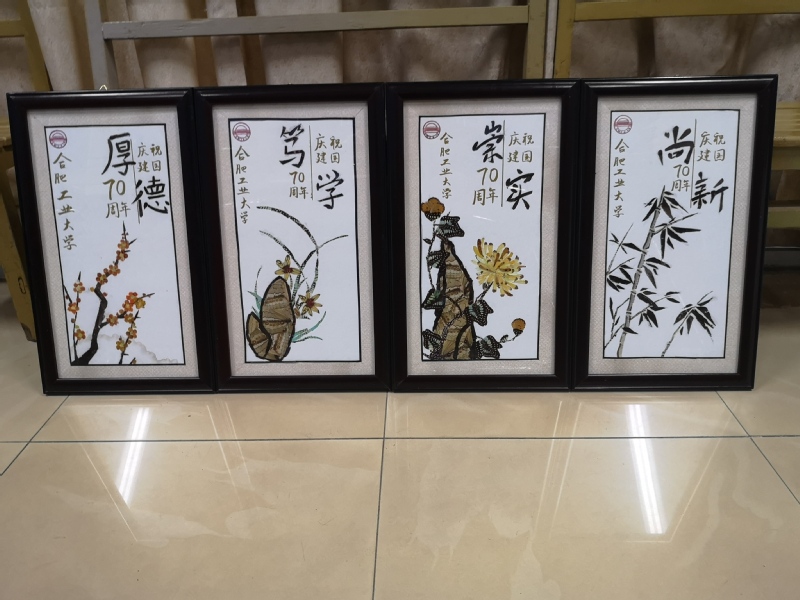 厚德
庆祝
建国
70
周年
合肥工业大学
笃学
庆祝
建国
70
周年
合肥工业大学
崇实
庆祝
建国
70
周年
合肥工业大学
尚新
庆祝
建国
70
周年
合肥工业大学